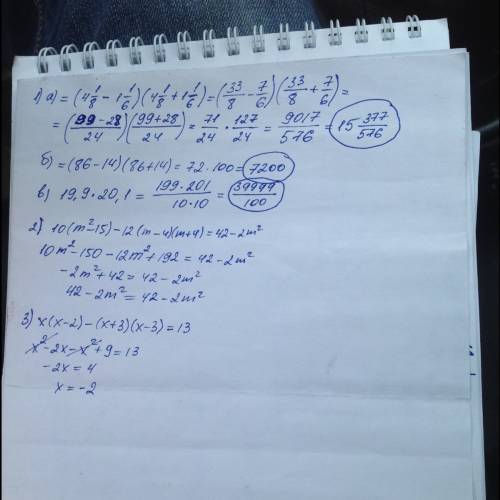 1) а) = (4 1/8 - 1 1/6)(4 1/8 + 1 1/6) = (33/8 - 7/6)(33/8 + 7/6) =
= (99-28/24)(99+28/24) = 71/24 · 127/24 = 9017/576 = 15 377/576
б) = (86-14)(86+14) = 72·100 = 7200
в) 19,9·20,1 = 199·201/10·10 = 39999/100
2) 10(m²-15)-12(m-4)(m+4)=42-2m²
10m²-150-12m²+192=42-2m²
-2m²+42=42-2m²
42-2m²=42-2m²
3) x(x-2)-(x+3)(x-3)=13
x²-2x-x²+9=13
-2x=4
x=-2